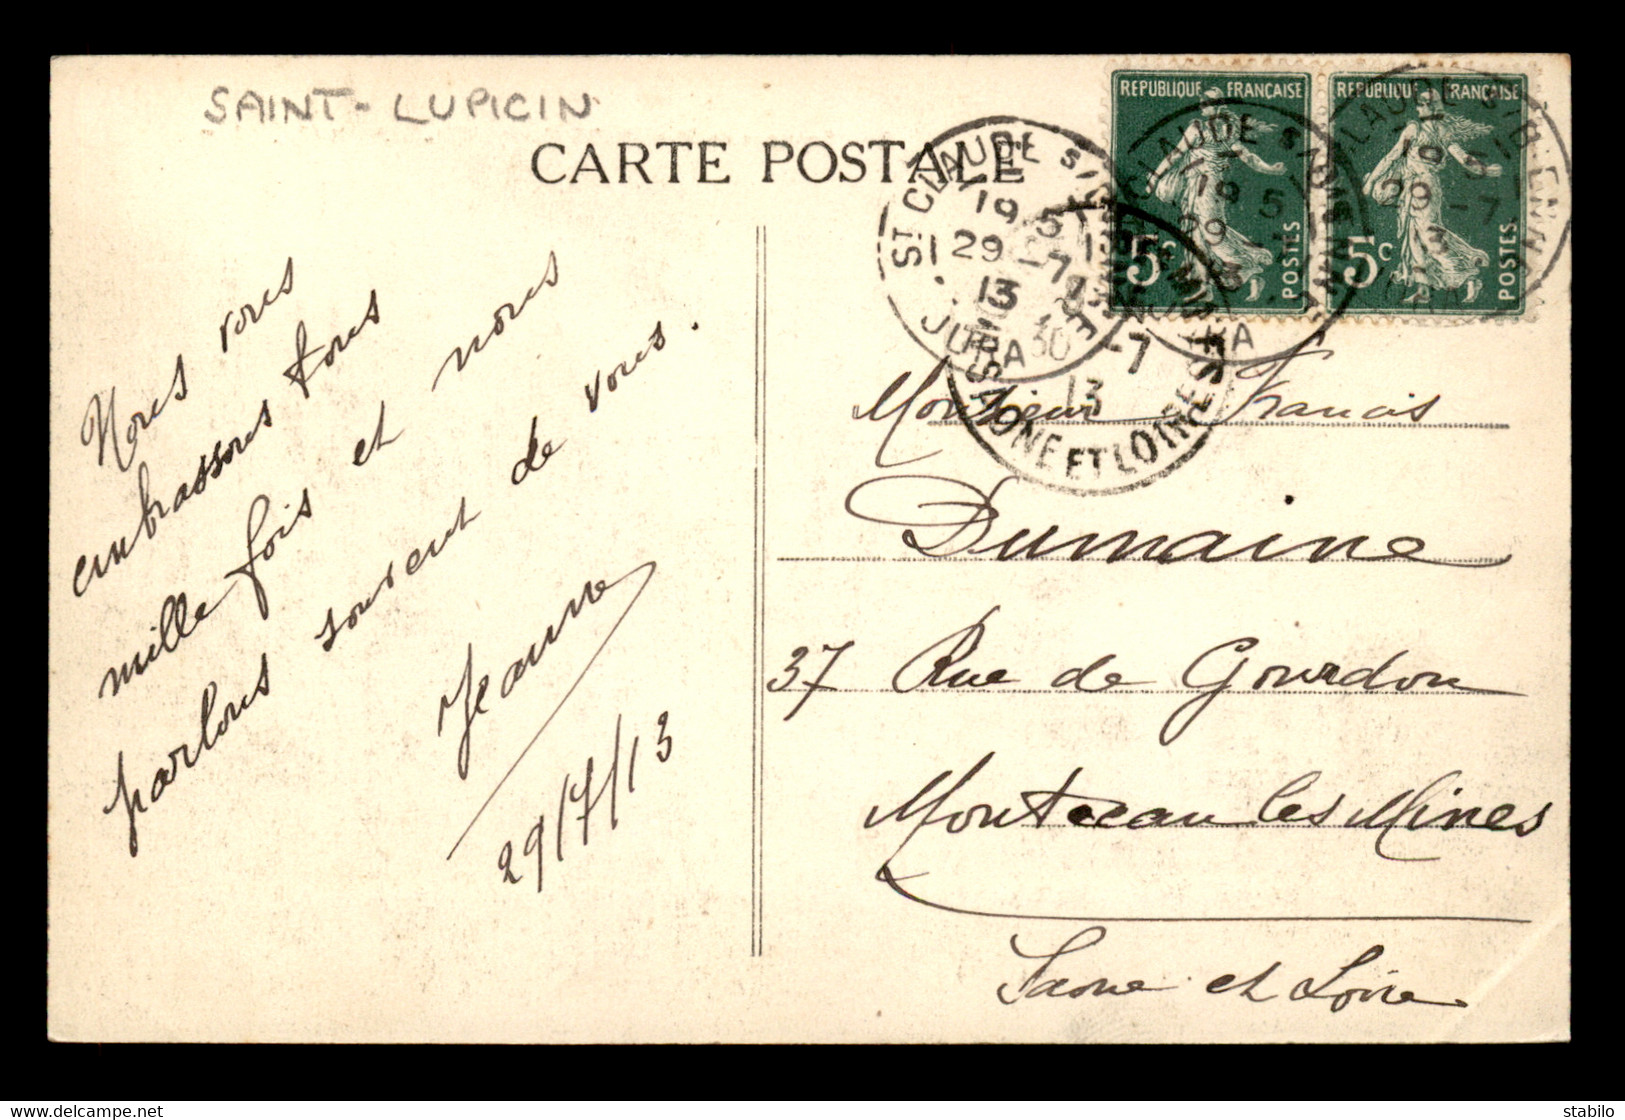 SAINT-LUPICIN
CARTE POSTALE
REPUBLIQUE FRANÇAISE
5c POSTES
REPUBLIQUE FRANÇAISE
5c POSTES
ST CLAUDE S/BIENNE
19 5
29 -7
13
JURA
CLAUDE
19 5
29
13
CLAUDE S/BIENNE
19 5
29 -7
13
30 -7
13
SAONE ET LOIRE
Nous vous
embrassons tous
mille fois et nous
parlons souvent de vous.
Jeanne
29/7/13
Monsieur Francis
Dumaine
37 Rue de Gourdon
Montceau les Mines
Saone et Loire
stabilo
delcampe.net